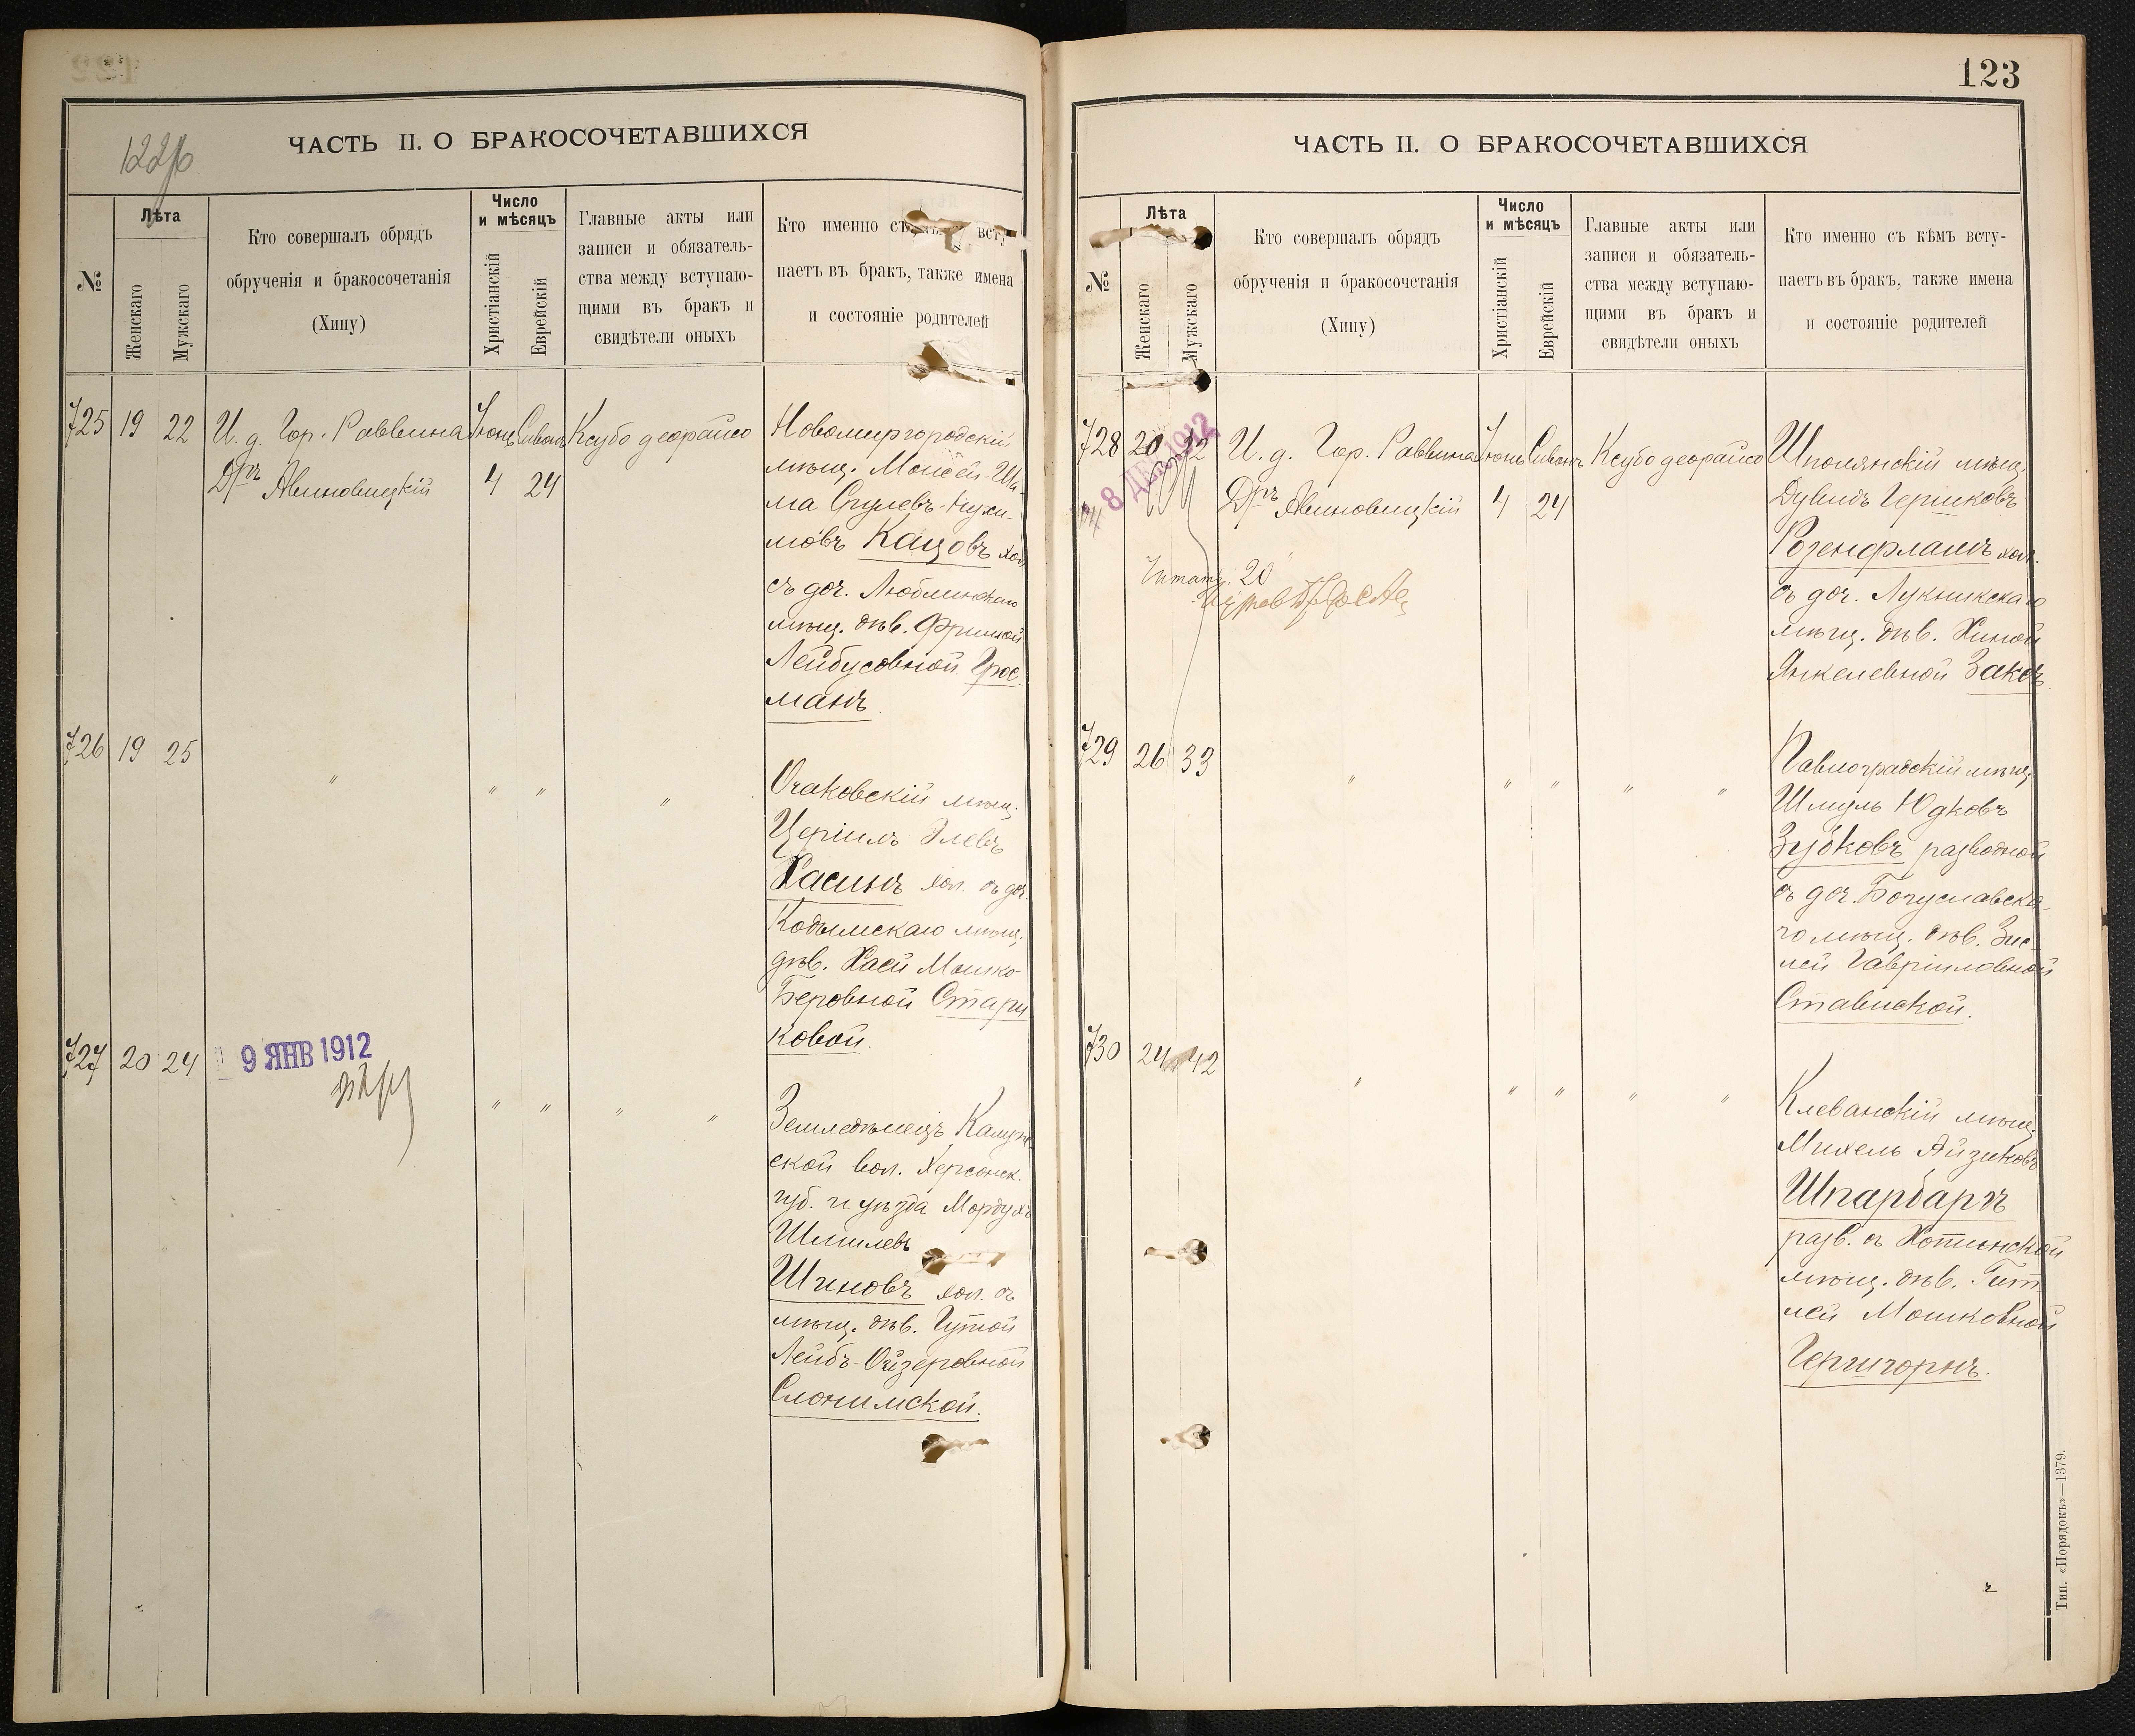 122об
ЧАСТЬ II. О БРАКОСОЧЕТАВШИХСЯ
№
Лѣта
Женскаго
Мужскаго
Кто совершалъ обрядъ
обрученія и бракосочетанія
(Хипу)
Число
и мѣсяцъ
Христіанскій
Еврейскій
Главные акты или
записи и обязатель-
ства между вступаю-
щими въ бракъ и
свидѣтели оныхъ
Кто именно съ всту-
паетъ въ бракъ, также имена
и состояніе родителей
725 19 22 И. д. Гор. Раввина Іюнь Сивонъ Ксубо деорайсо
Дръ Авиновицкій 4 24
Новомиргородскій
мѣщ. Моисей-Ши-
ма Срулевъ-Нухи-
мовъ Кацовъ хол.
съ доч. Люблинскаго
мѣщ. дѣв. Фримой
Лейбусовной Грос-
манъ.
726 19 25 " " " "
Очаковскій мѣщ.
Церіилъ Элевъ
Хасинъ хол. съ доч.
Кодымскаго мѣщ.
дѣв. Хаей Мошко-
Беровной Стари
ковой.
727 20 24 9 ЯНВ 1912
" " " "
Земледѣлецъ Калуж-
ской вол. Херсонск.
губ. и уѣзда Мордухъ
Шмилевъ
Шиновъ хол. съ
мѣщ. дѣв. Гутой
Лейбъ-Ойзеровной
Слонимской.
123
ЧАСТЬ II. О БРАКОСОЧЕТАВШИХСЯ
№
Лѣта
Женскаго
Мужскаго
Кто совершалъ обрядъ
обрученія и бракосочетанія
(Хипу)
Число
и мѣсяцъ
Христіанскій
Еврейскій
Главные акты или
записи и обязатель-
ства между вступаю-
щими въ бракъ и
свидѣтели оныхъ
Кто именно съ кѣмъ всту-
паетъ въ бракъ, также имена
и состояніе родителей
728 20 22 И. д. Гор. Раввина Іюнь Сивонъ Ксубо деорайсо
8 ДЕК 1912
Дръ Авиновицкій 4 24
Читать: "20"
Шполянскій мѣщ.
Дувидъ Гершковъ
Розенфламъ хол.
съ доч. Лукникскаго
мѣщ. дѣв. Хиной
Янкелевной Заксъ
729 26 33 " " " " "
Павлоградскій мѣщ.
Шмуль Юдковъ
Зубковъ разводной
съ доч. Богуславска-
го мѣщ. дѣв. Зис-
лей Гавріиловной
Ставиской.
730 24 42 " " " " "
Клеванскій мѣщ.
Михель Айзиковъ
Шпарбардъ
разв. съ Хотинской
мѣщ. дѣв. Гит-
лей Мошковной
Гершгорнъ.
Тип. «Порядокъ»—1379.